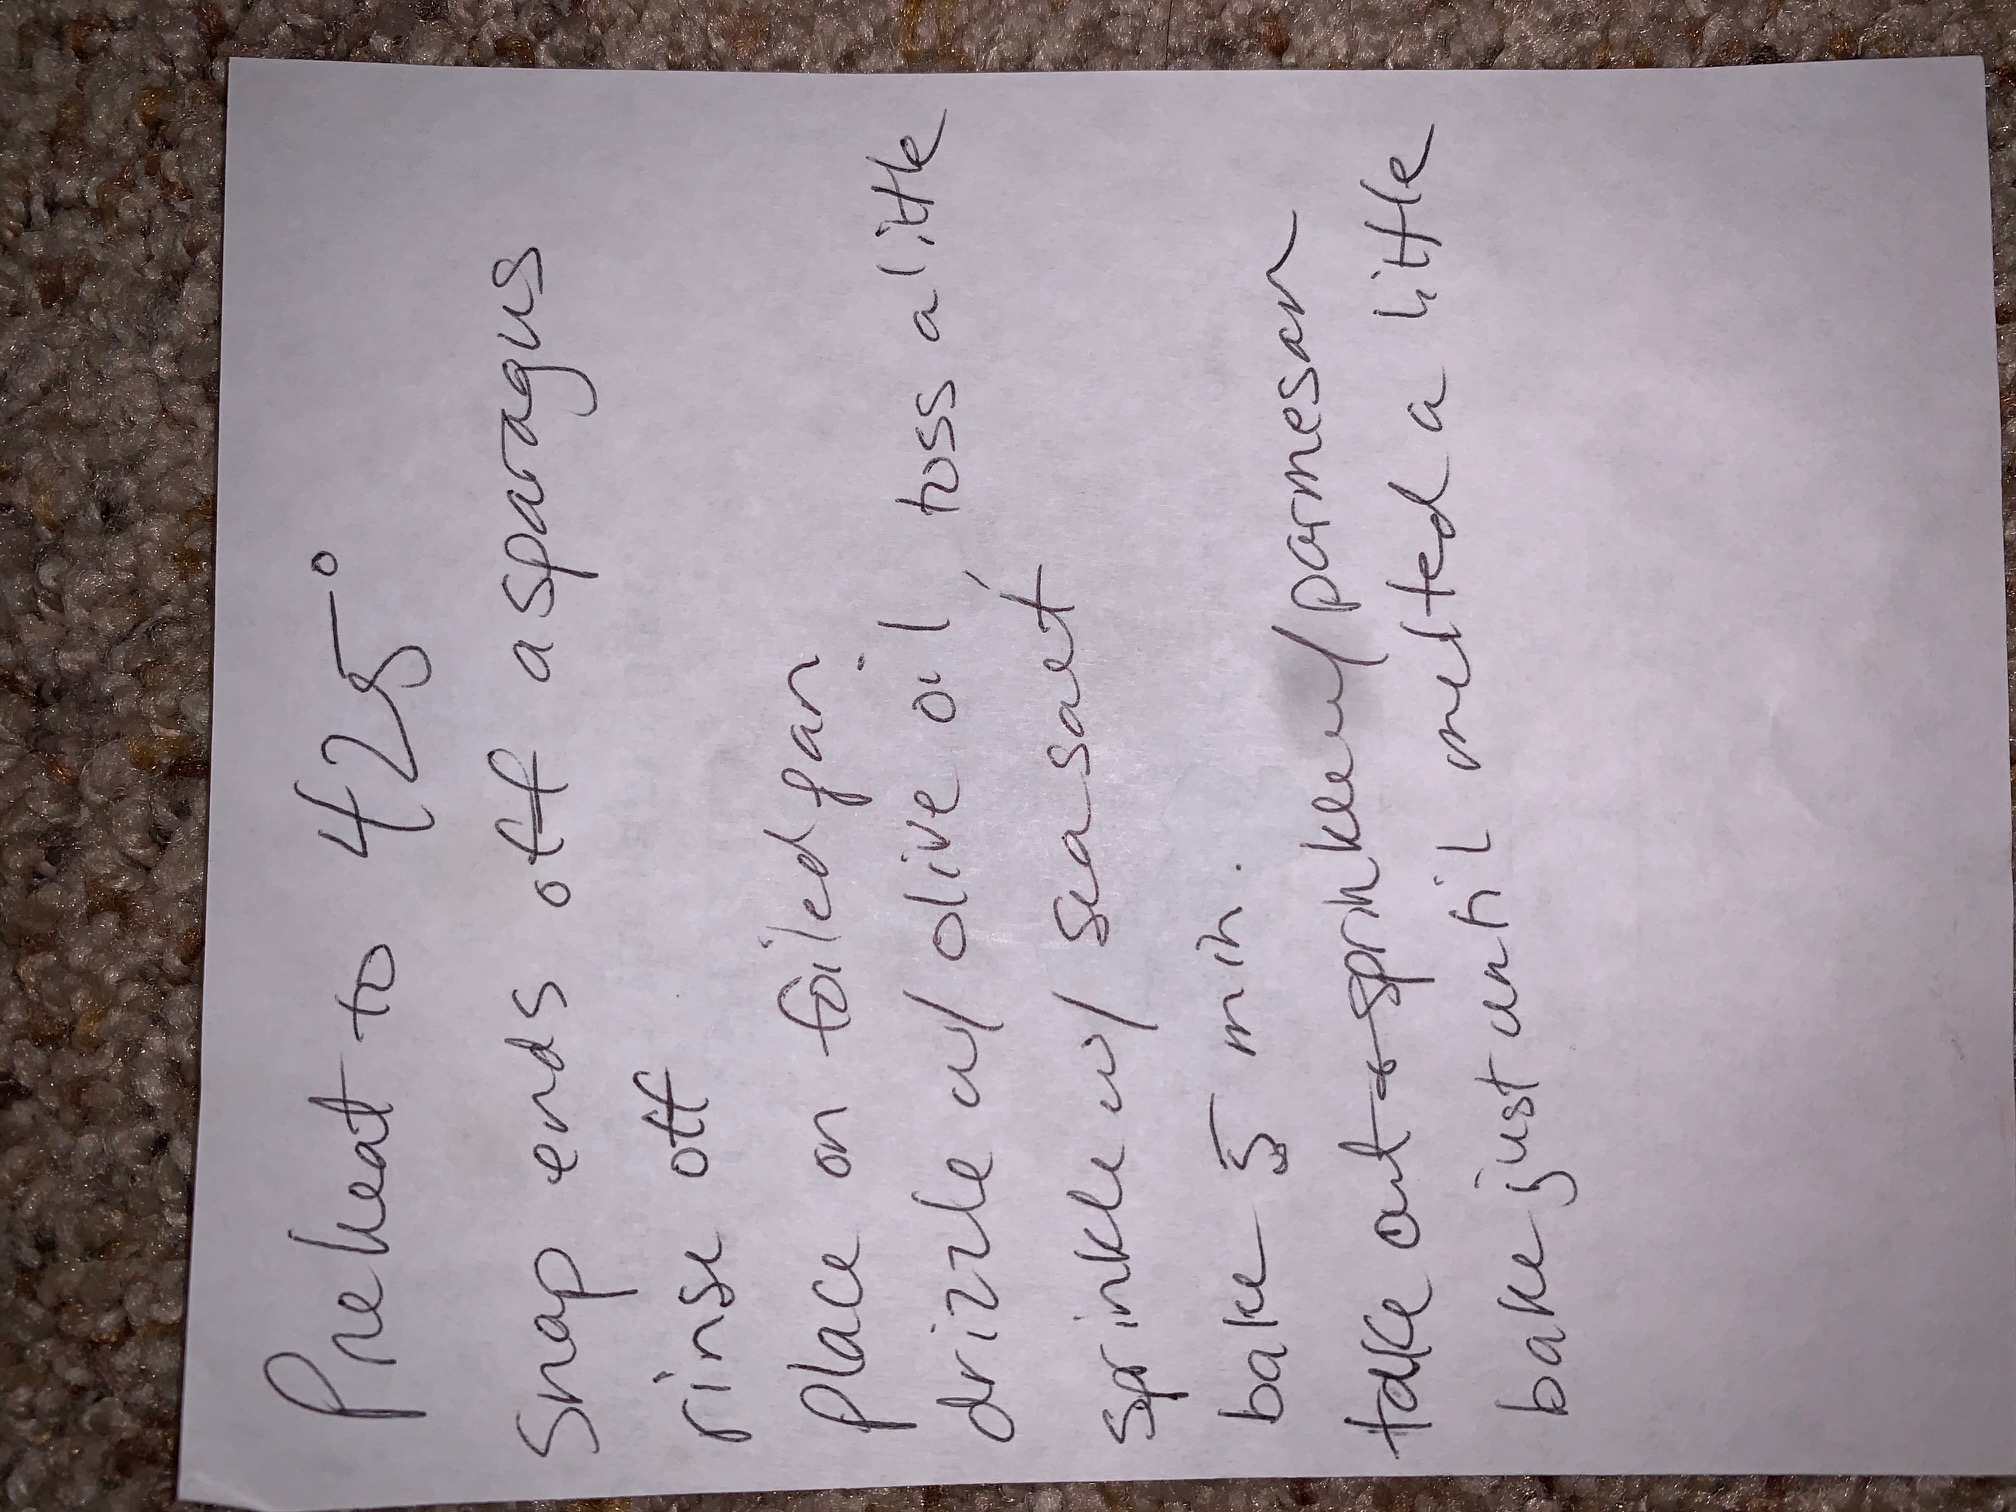 Preheat to 425°
Snap ends off asparagus
rinse off
place on foiled pan
drizzle w/ olive oil, toss a little
sprinkle w/ sea salt
bake 5 min.
take out & sprinkle w/ parmesan
bake just until melted a little